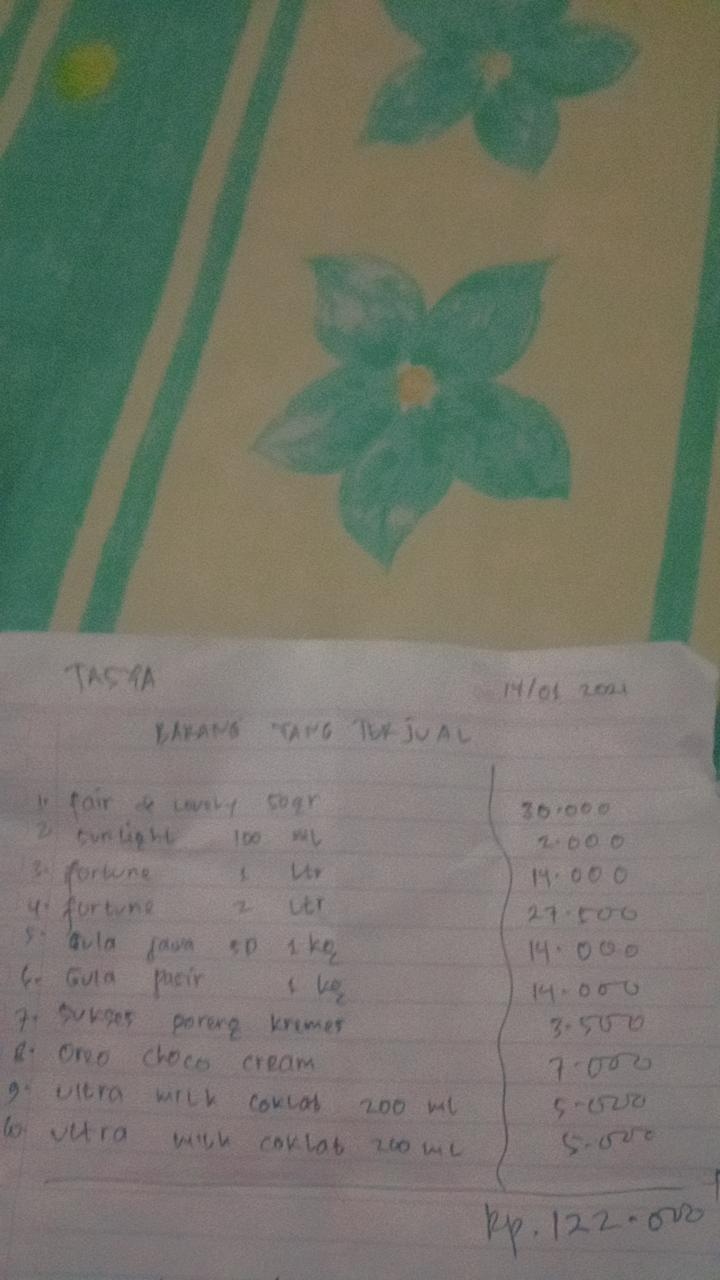 TASYA 14/01 2021
BARANG YANG TERJUAL
1. fair & lovely 50gr 30.000
2. sunlight 100 ml 2.000
3. fortune 1 Ltr 14.000
4. fortune 2 Ltr 27.500
5. Gula Jawa SD 1 kg 14.000
6. Gula pasir 1 kg 14.000
7. Sukses goreng kremes 3.500
8. Oreo choco cream 7.000
9. Ultra milk coklat 200 ml 5.000
10. Ultra milk coklat 200 ml 5.000
Rp. 122.000